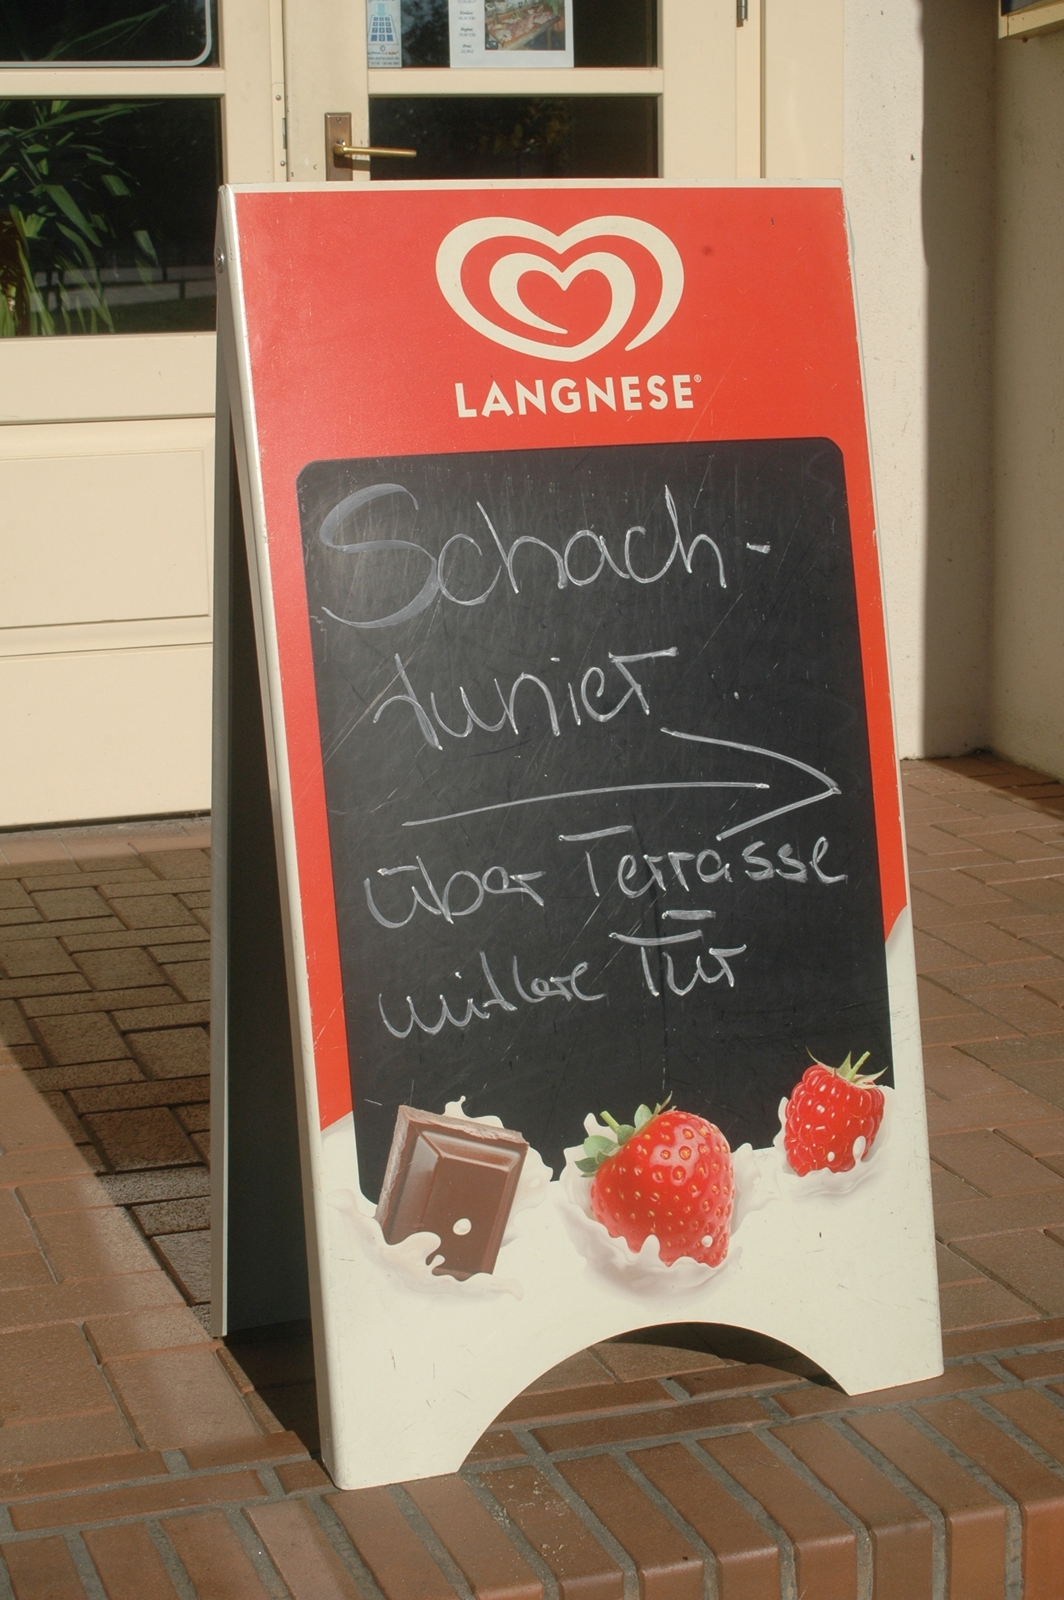 LANGNESE®
Schach-
tunier
über Terrasse
mittlere Tür